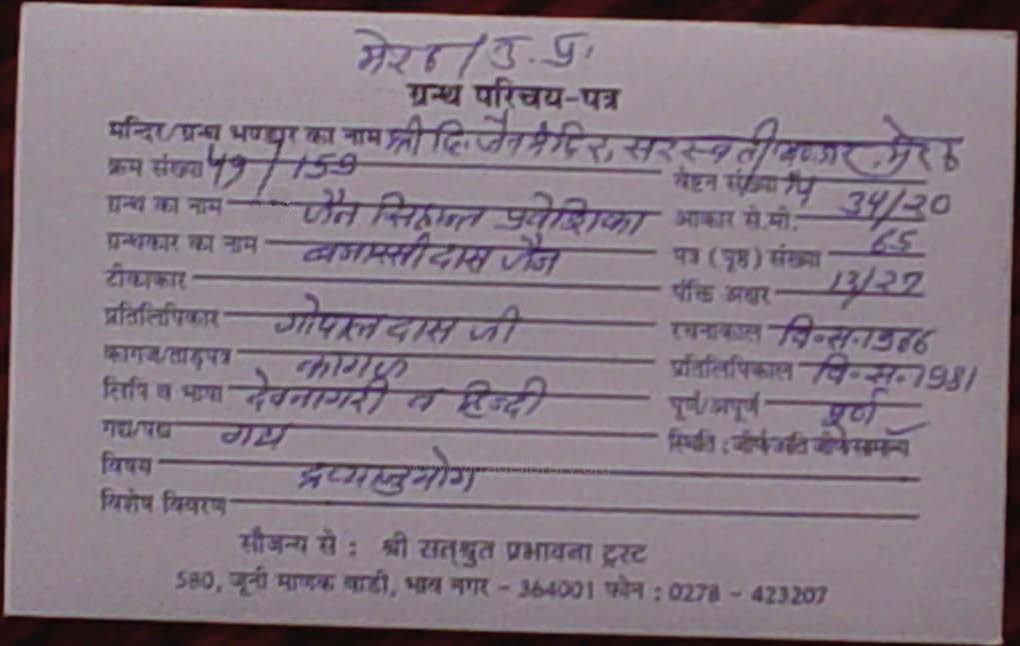 मेरठ / उ. प्र.
ग्रन्थ परिचय-पत्र
मन्दिर/ग्रन्थ भण्डार का नाम श्री दि. जैन मंदिर, सरस्वती भण्डार, मेरठ
क्रम संख्या 49 / 159 वेष्टन संख्या
ग्रन्थ का नाम जैन सिद्धान्त प्रवेशिका आकार से.मी. 34/20
ग्रन्थकार का नाम दास जैन पत्र (पृष्ठ) संख्या 65
टीकाकार पंक्ति अक्षर 13/27
प्रतिलिपिकार गोपाल दास जी रचनाकाल वि.स.
कागज/ताड़पत्र कागज प्रतिलिपिकाल वि.स. 1981
लिपि व भाषा देवनागरी व हिन्दी पूर्ण/अपूर्ण पूर्ण
गद्य/पद्य गद्य स्थिति : जीर्ण/अति जीर्ण/सामान्य
विषय द्रव्यानुयोग
विशेष विवरण
सौजन्य से : श्री सत्श्रुत प्रभावना ट्रस्ट
580, जूनी माणेक वाडी, भाव नगर - 364001 फोन : 0278 - 423207